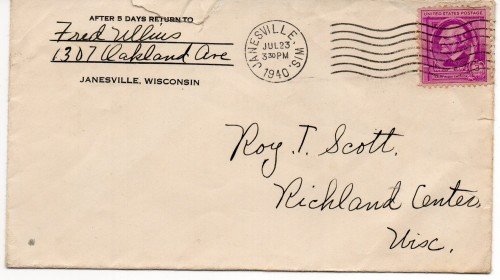 AFTER 5 DAYS RETURN TO
Fred
1307 Oakland Ave
JANESVILLE, WISCONSIN
JANESVILLE, WIS.
JUL 23
3 30 PM
1940
UNITED STATES POSTAGE
Roy T. Scott,
Richland Center,
Wisc.